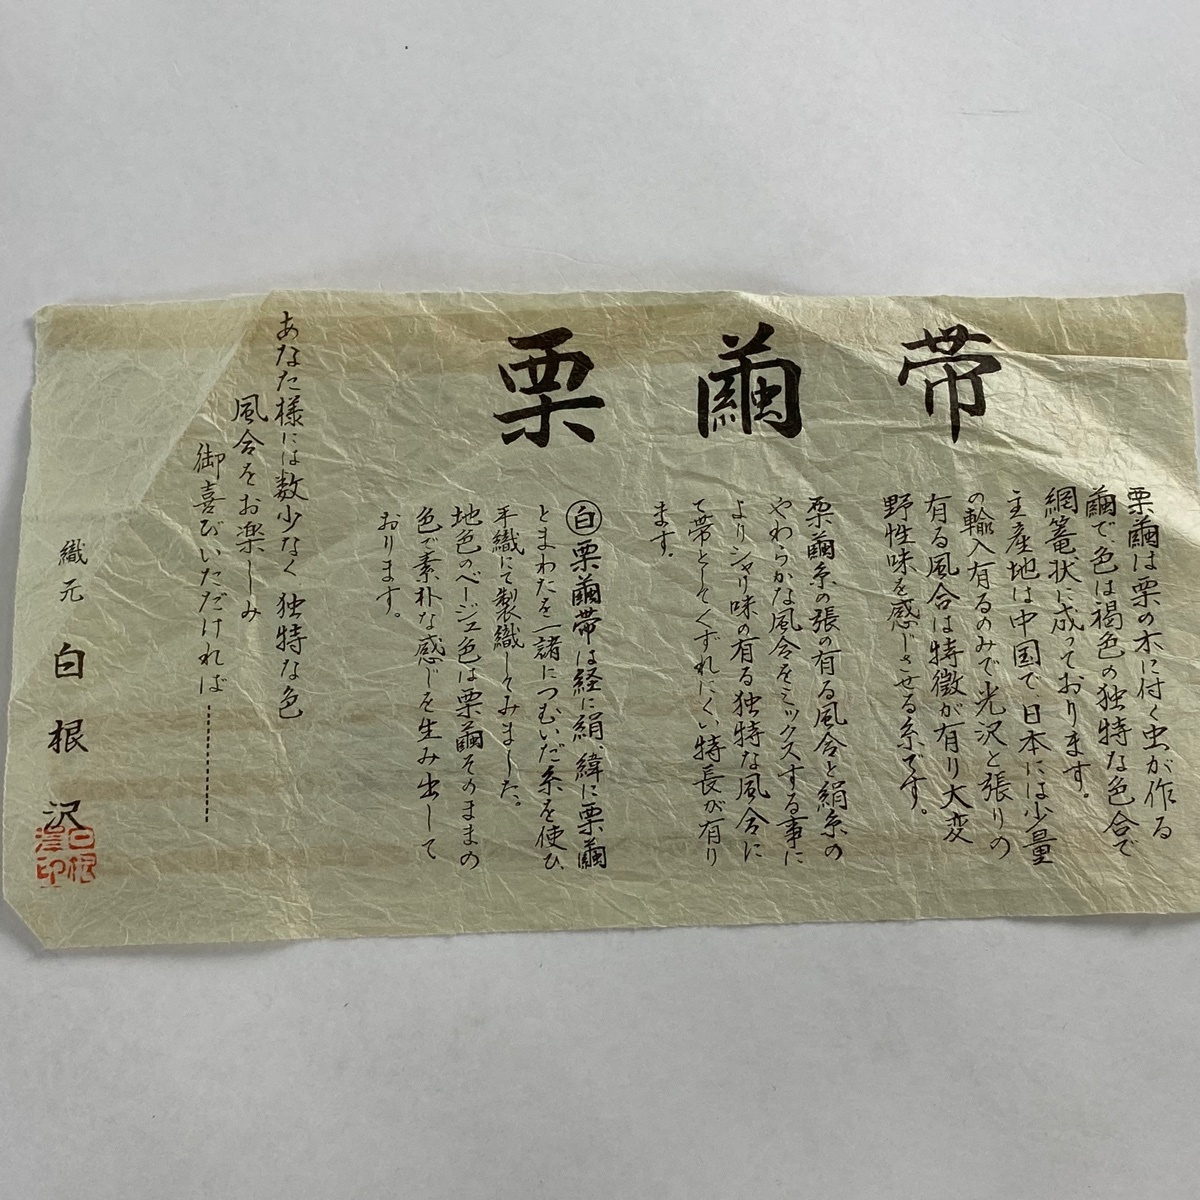 栗繭帯
栗繭は栗の木に付く虫が作る
繭で、色は褐色の独特な色合で
網篭状に成っております。
主産地は中国で、日本には少量
の輸入有るのみで光沢と張りの
有る風合は特徴が有り大変
野性味を感じさせる糸です。
栗繭糸の張の有る風合と絹糸の
やわらかな風合をミックスする事に
よりシャリ味の有る独特な風合に
て帯としてくずれにくい特長が有り
ます。
白栗繭帯は経に絹、緯に栗繭
とまわたを一諸につむいだ糸を使ひ、
手織にて製織してみました。
地色のベージュ色は栗繭そのままの
色で素朴な感じを生み出して
おります。
あなた様には数少なく独特な色
風合をお楽しみ
御喜びいただければ………
織元 白根沢
白根澤印